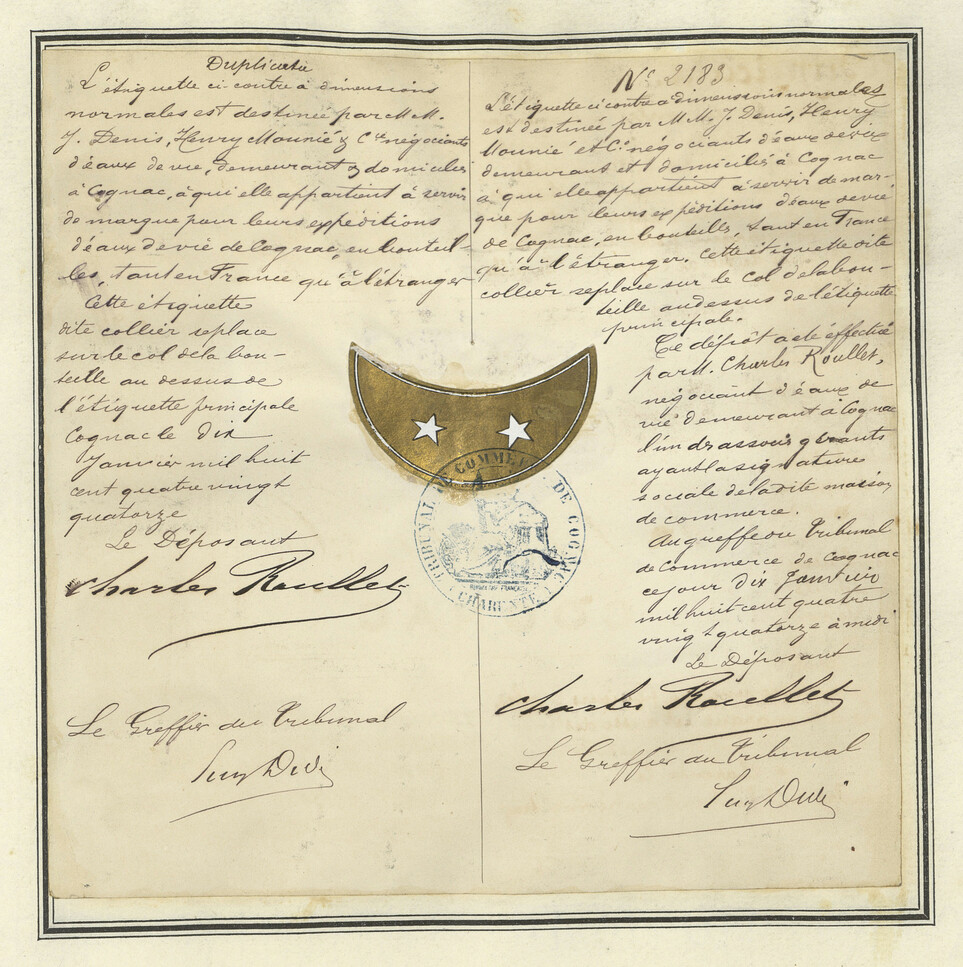 Duplicata
L'étiquette ci contre à dimensions
normales est destinée par M.M.
J. Denis, Henry Mounié & Cie négociants
d'eaux de vie, demeurant & domiciliés
à Cognac, à qui elle appartient à servir
de marque pour leurs expéditions
d'eaux de vie de Cognac, en bouteil-
les, tant en France qu'à l'étranger
Cette étiquette
dite collier se place
sur le col de la bou-
teille au dessus de
l'étiquette principale
Cognac le dix
Janvier mil huit
cent quatre vingt
quatorze
Le Déposant
Charles Roullet
Le Greffier du Tribunal
N° 2183
L'étiquette ci contre à dimensions normales
est destinée par M.M. J. Denis, Henry
Mounié et Cie négociants d'eaux de vie
demeurant et domiciliés à Cognac
à qui elle appartient à servir de mar-
que pour leurs expéditions d'eaux de vie
de Cognac, en bouteilles, tant en France
qu'à l'étranger. Cette étiquette dite
collier se place sur le col de la bou-
teille au dessus de l'étiquette
principale.
Ce dépôt a été effectué
par M. Charles Roullet,
négociant d'eaux de
vie demeurant à Cognac
l'un des associés gérants
ayant la signature
sociale de la dite maison
de commerce.
Au greffe du Tribunal
de Commerce de Cognac
ce jour dix Janvier
mil huit cent quatre
vingt quatorze à midi
Le Déposant
Charles Roullet
Le Greffier du Tribunal
TRIBUNAL DE COMMERCE DE COGNAC
CHARENTE